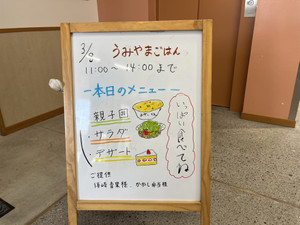 3/8 うみやまごはん
11:00〜14:00まで
ー本日のメニューー
・親子丼
・サラダ
・デザート
いっぱい食べてね
ご提供